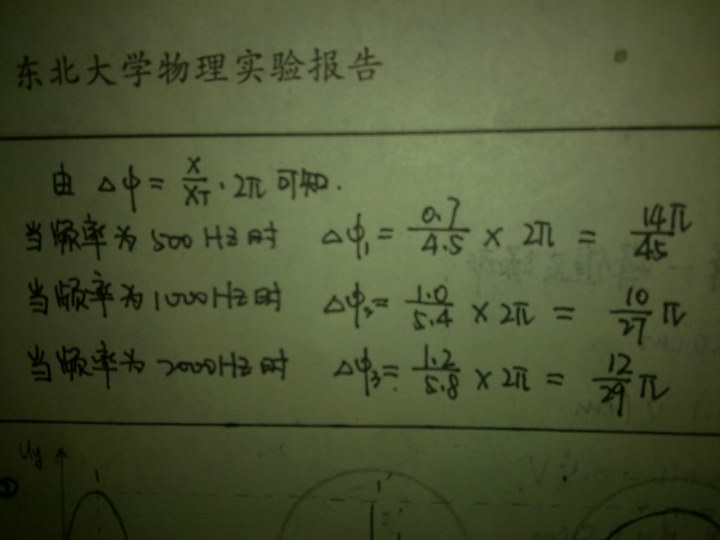 东北大学物理实验报告
由 Δφ = X/X_T · 2π 可知.
当频率为 500 Hz时 Δφ₁ = 0.7/4.5 × 2π = 14π/45
当频率为 1000Hz时 Δφ₂ = 1.0/5.4 × 2π = 10/27 π
当频率为 2000Hz时 Δφ₃ = 1.2/5.8 × 2π = 12/29 π
Uy
1 1'